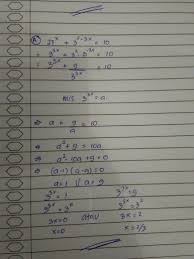 A) 27ˣ + 3²⁻³ˣ = 10
= 3³ˣ + 3² · 3⁻³ˣ = 10
= 3³ˣ + 9/3³ˣ = 10
mis 3³ˣ = a
⇒ a + 9/a = 10
⇒ a² + 9 = 10a
⇒ a² - 10a + 9 = 0
⇒ (a-1)(a-9) = 0
a = 1 a = 9
3³ˣ = 1 3³ˣ = 9
3³ˣ = 3⁰ 3³ˣ = 3²
3x = 0 atau 3x = 2
x = 0 x = 2/3